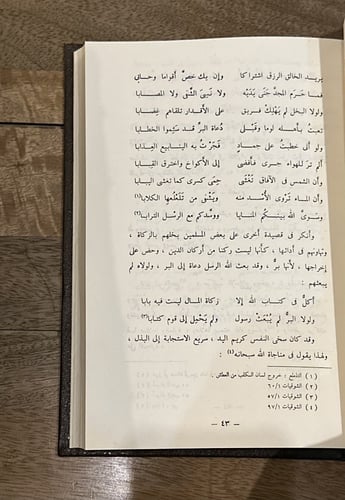 يريد الخالق الرزق اشتراكا وإن يك خص أقواما وحابى
فما حرم المجد جنى يديه ولا نسى الشقى ولا المصابا
ولولا البخل لم يهلك فريق على الأقدار تلقاهم غضابا
تعبت بأهله لوما وقبلى دعاة البر قد سئموا الخطابا
ولو أنى خطبت على جماد فجرت به الينابيع العذابا
ألم تر للهواء جرى فأفضى إلى الأكواخ واخترق القبابا
وأن الشمس فى الآفاق تغشى حمى كسرى كما تغشى اليبابا
وأن الماء تروى الأسد منه ويشفى من تلعلعها الكلابا (١)
وسوى الله بينكم المنايا ووسدكم مع الرسل الترابا (٢)
وأنكر فى قصيدة أخرى على بعض المسلمين بخلهم بالزكاة ،
وتهاونهم فى أدائها ، كأنها ليست ركنا من أركان الدين ، وحض على
إخراجها ، لأنها بر ، وقد بعث الله الرسل دعاة إلى البر ، ولولاه لم
يبعثهم :
أكل فى كتاب الله إلا زكاة المال ليست فيه بابا
ولولا البر لم يبعث رسول ولم يحمل إلى قوم كتابا (٣)
وقد كان سخى النفس كريم اليد ، سريع الاستجابة إلى البذل ،
ولهذا يقول فى مناجاة الله سبحانه (٤) :
(١) التلعلع : خروج لسان الكلب من العطش .
(٢) الشوقيات ٦٠/١
(٣) الشوقيات ٥٧/١
(٤) الشوقيات ٩٧/١
— ٤٣ —